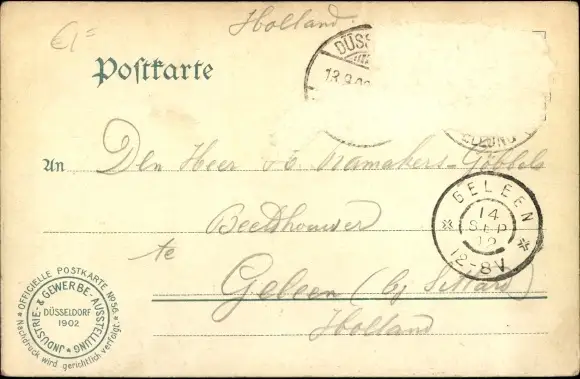 €1=
Holland.
Postkarte
DÜSS
13.9.02
ELLUNG
An Den Heer Ramakers-Göbbels
Beeldhouwer
GELEEN
14 SEP 02
12-8V
te
Geleen (bij Sittard)
Holland
OFFICIELLE POSTKARTE No 56.
Nachdruck wird gerichtlich verfolgt.
INDUSTRIE- & GEWERBE-AUSSTELLUNG
DÜSSELDORF
1902